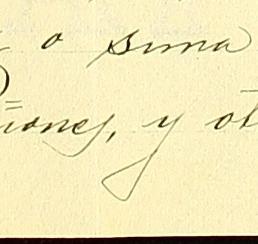 o suma
iones, y ot